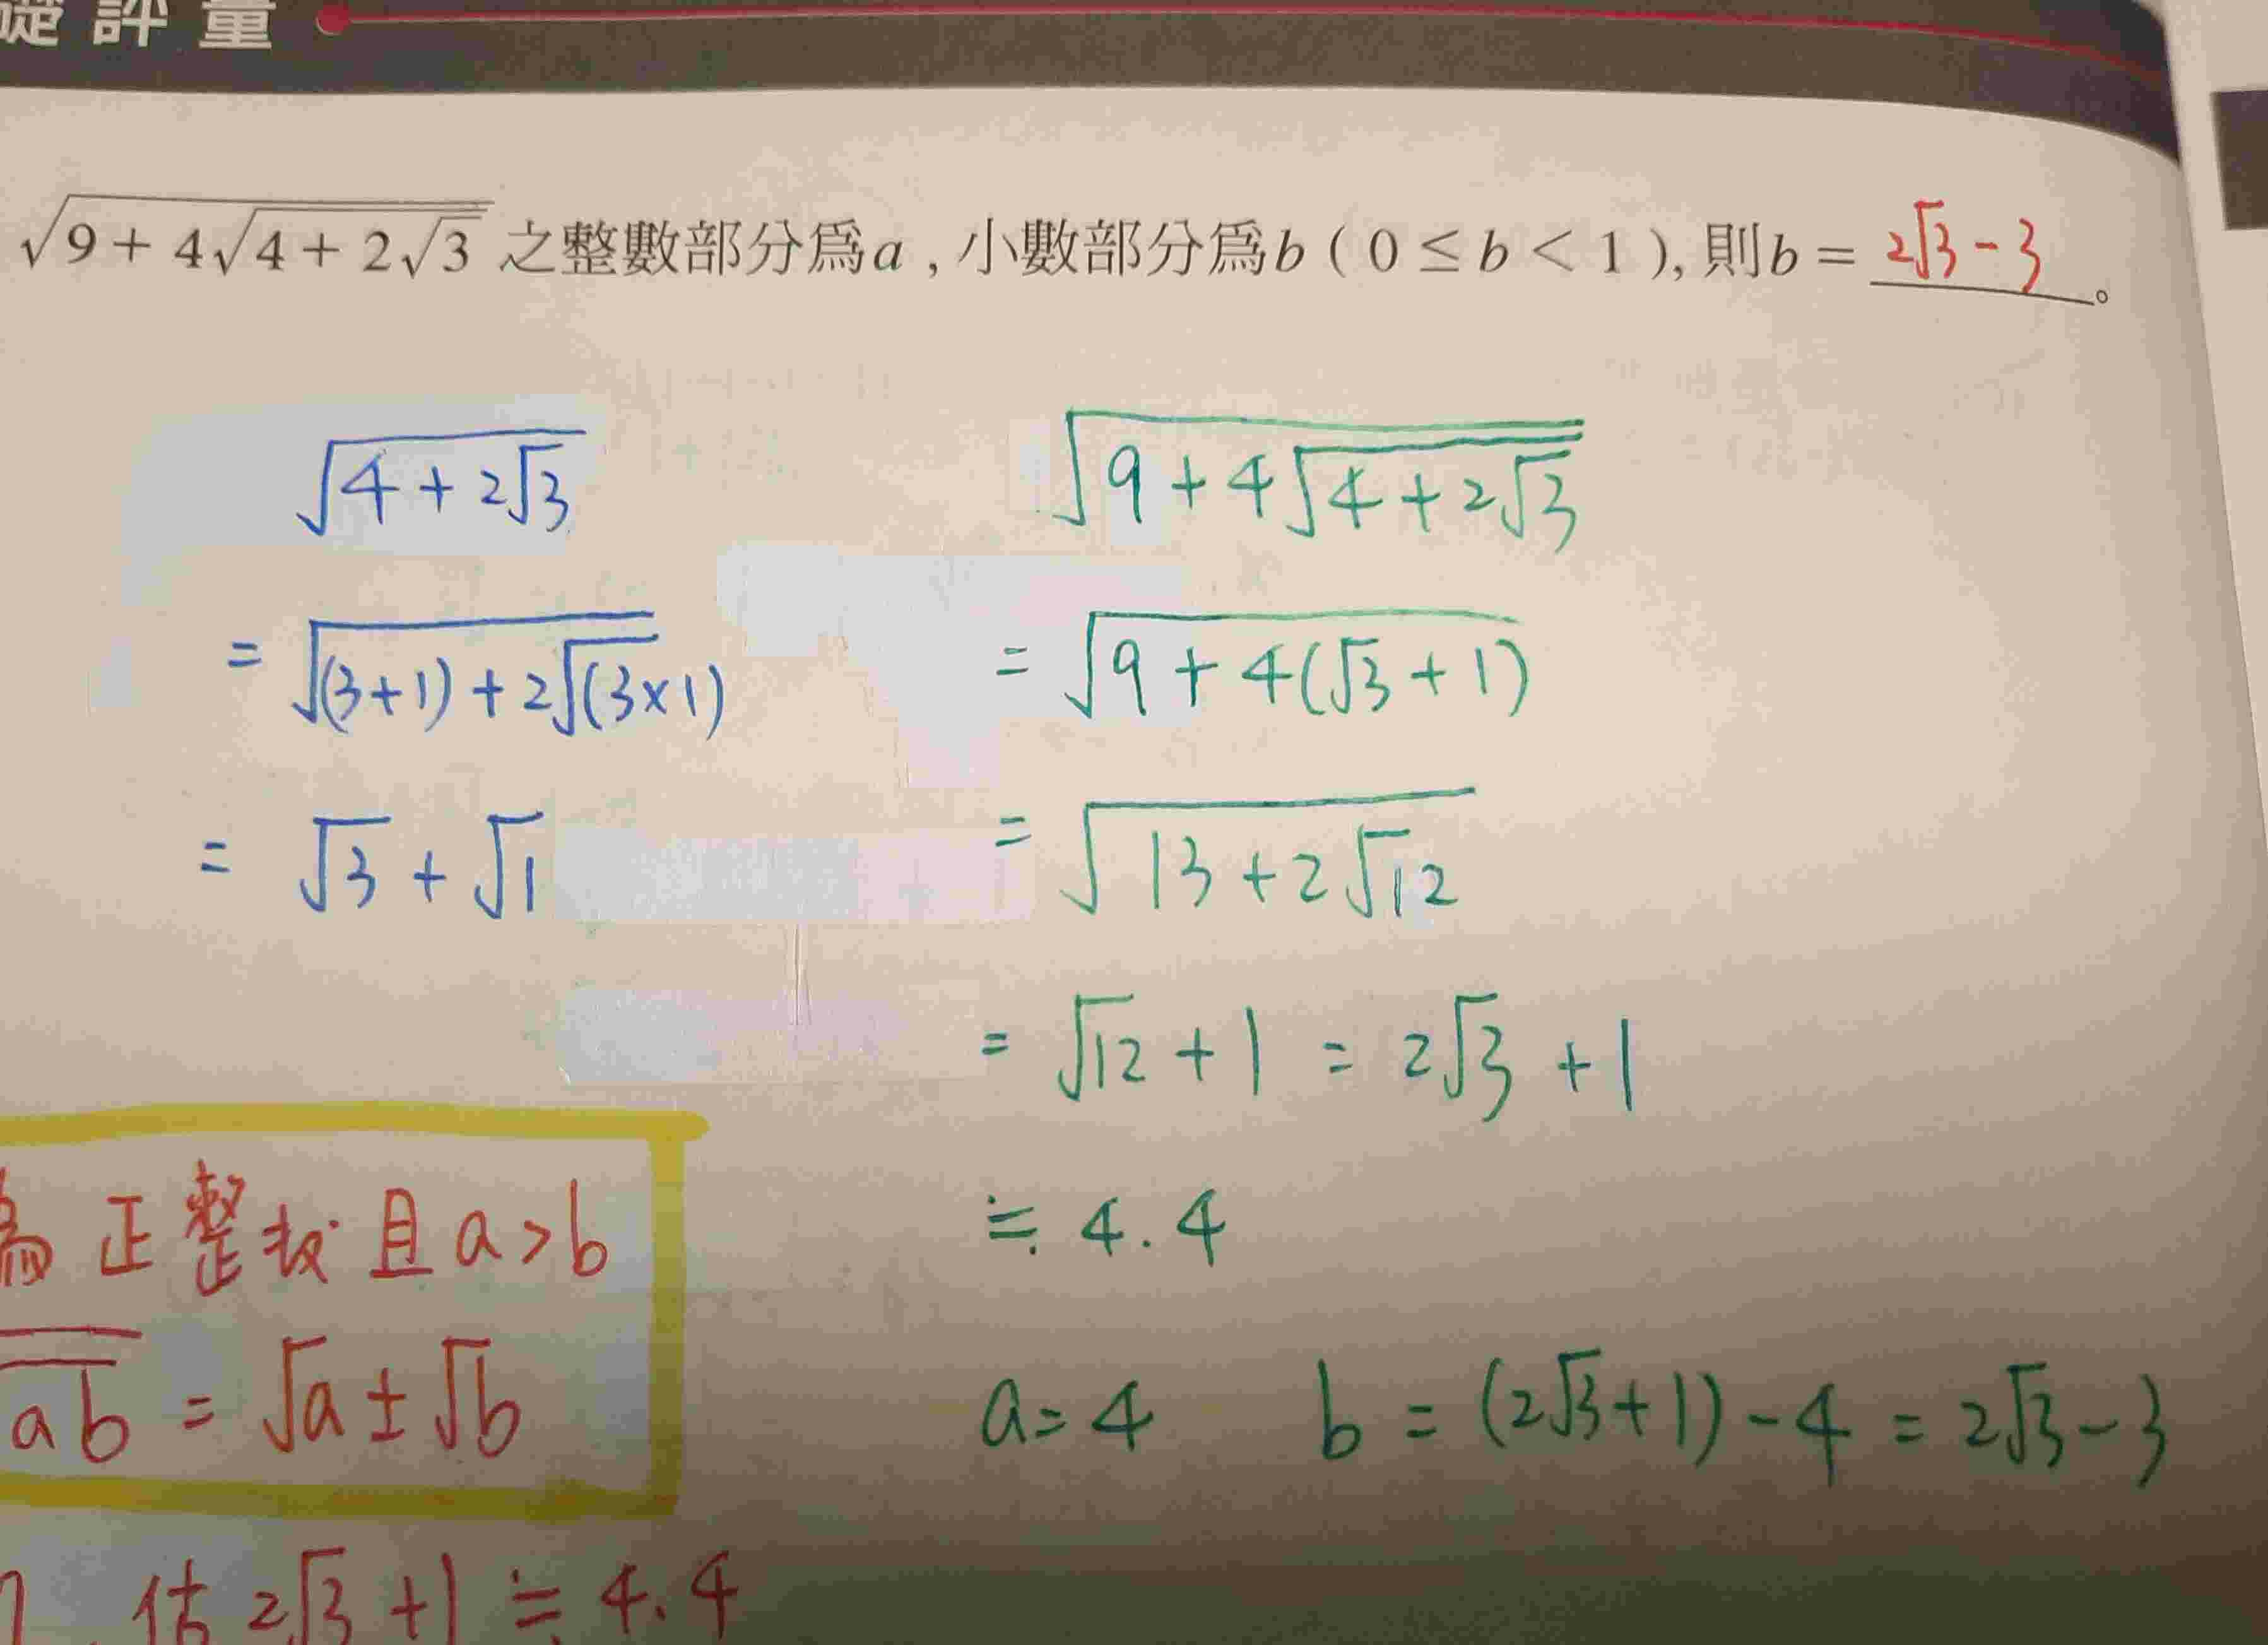 礎評量
√(9 + 4√(4 + 2√3)) 之整數部分爲a , 小數部分爲b ( 0 ≤ b < 1 ), 則b = 2√3 - 3 。
√(4 + 2√3)
= √((3+1) + 2√(3×1))
= √3 + √1
√(9 + 4√(4 + 2√3))
= √(9 + 4(√3 + 1))
= √(13 + 2√12)
= √12 + 1 = 2√3 + 1
≒ 4.4
a = 4 b = (2√3+1) - 4 = 2√3 - 3
為正整数且a>b
ab = √a ± √b
估 2√3 + 1 ≒ 4.4